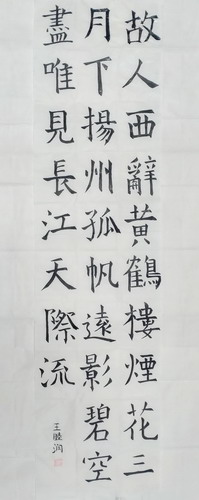 故人西辭黃鶴樓煙花三
月下揚州孤帆遠影碧空
盡唯見長江天際流